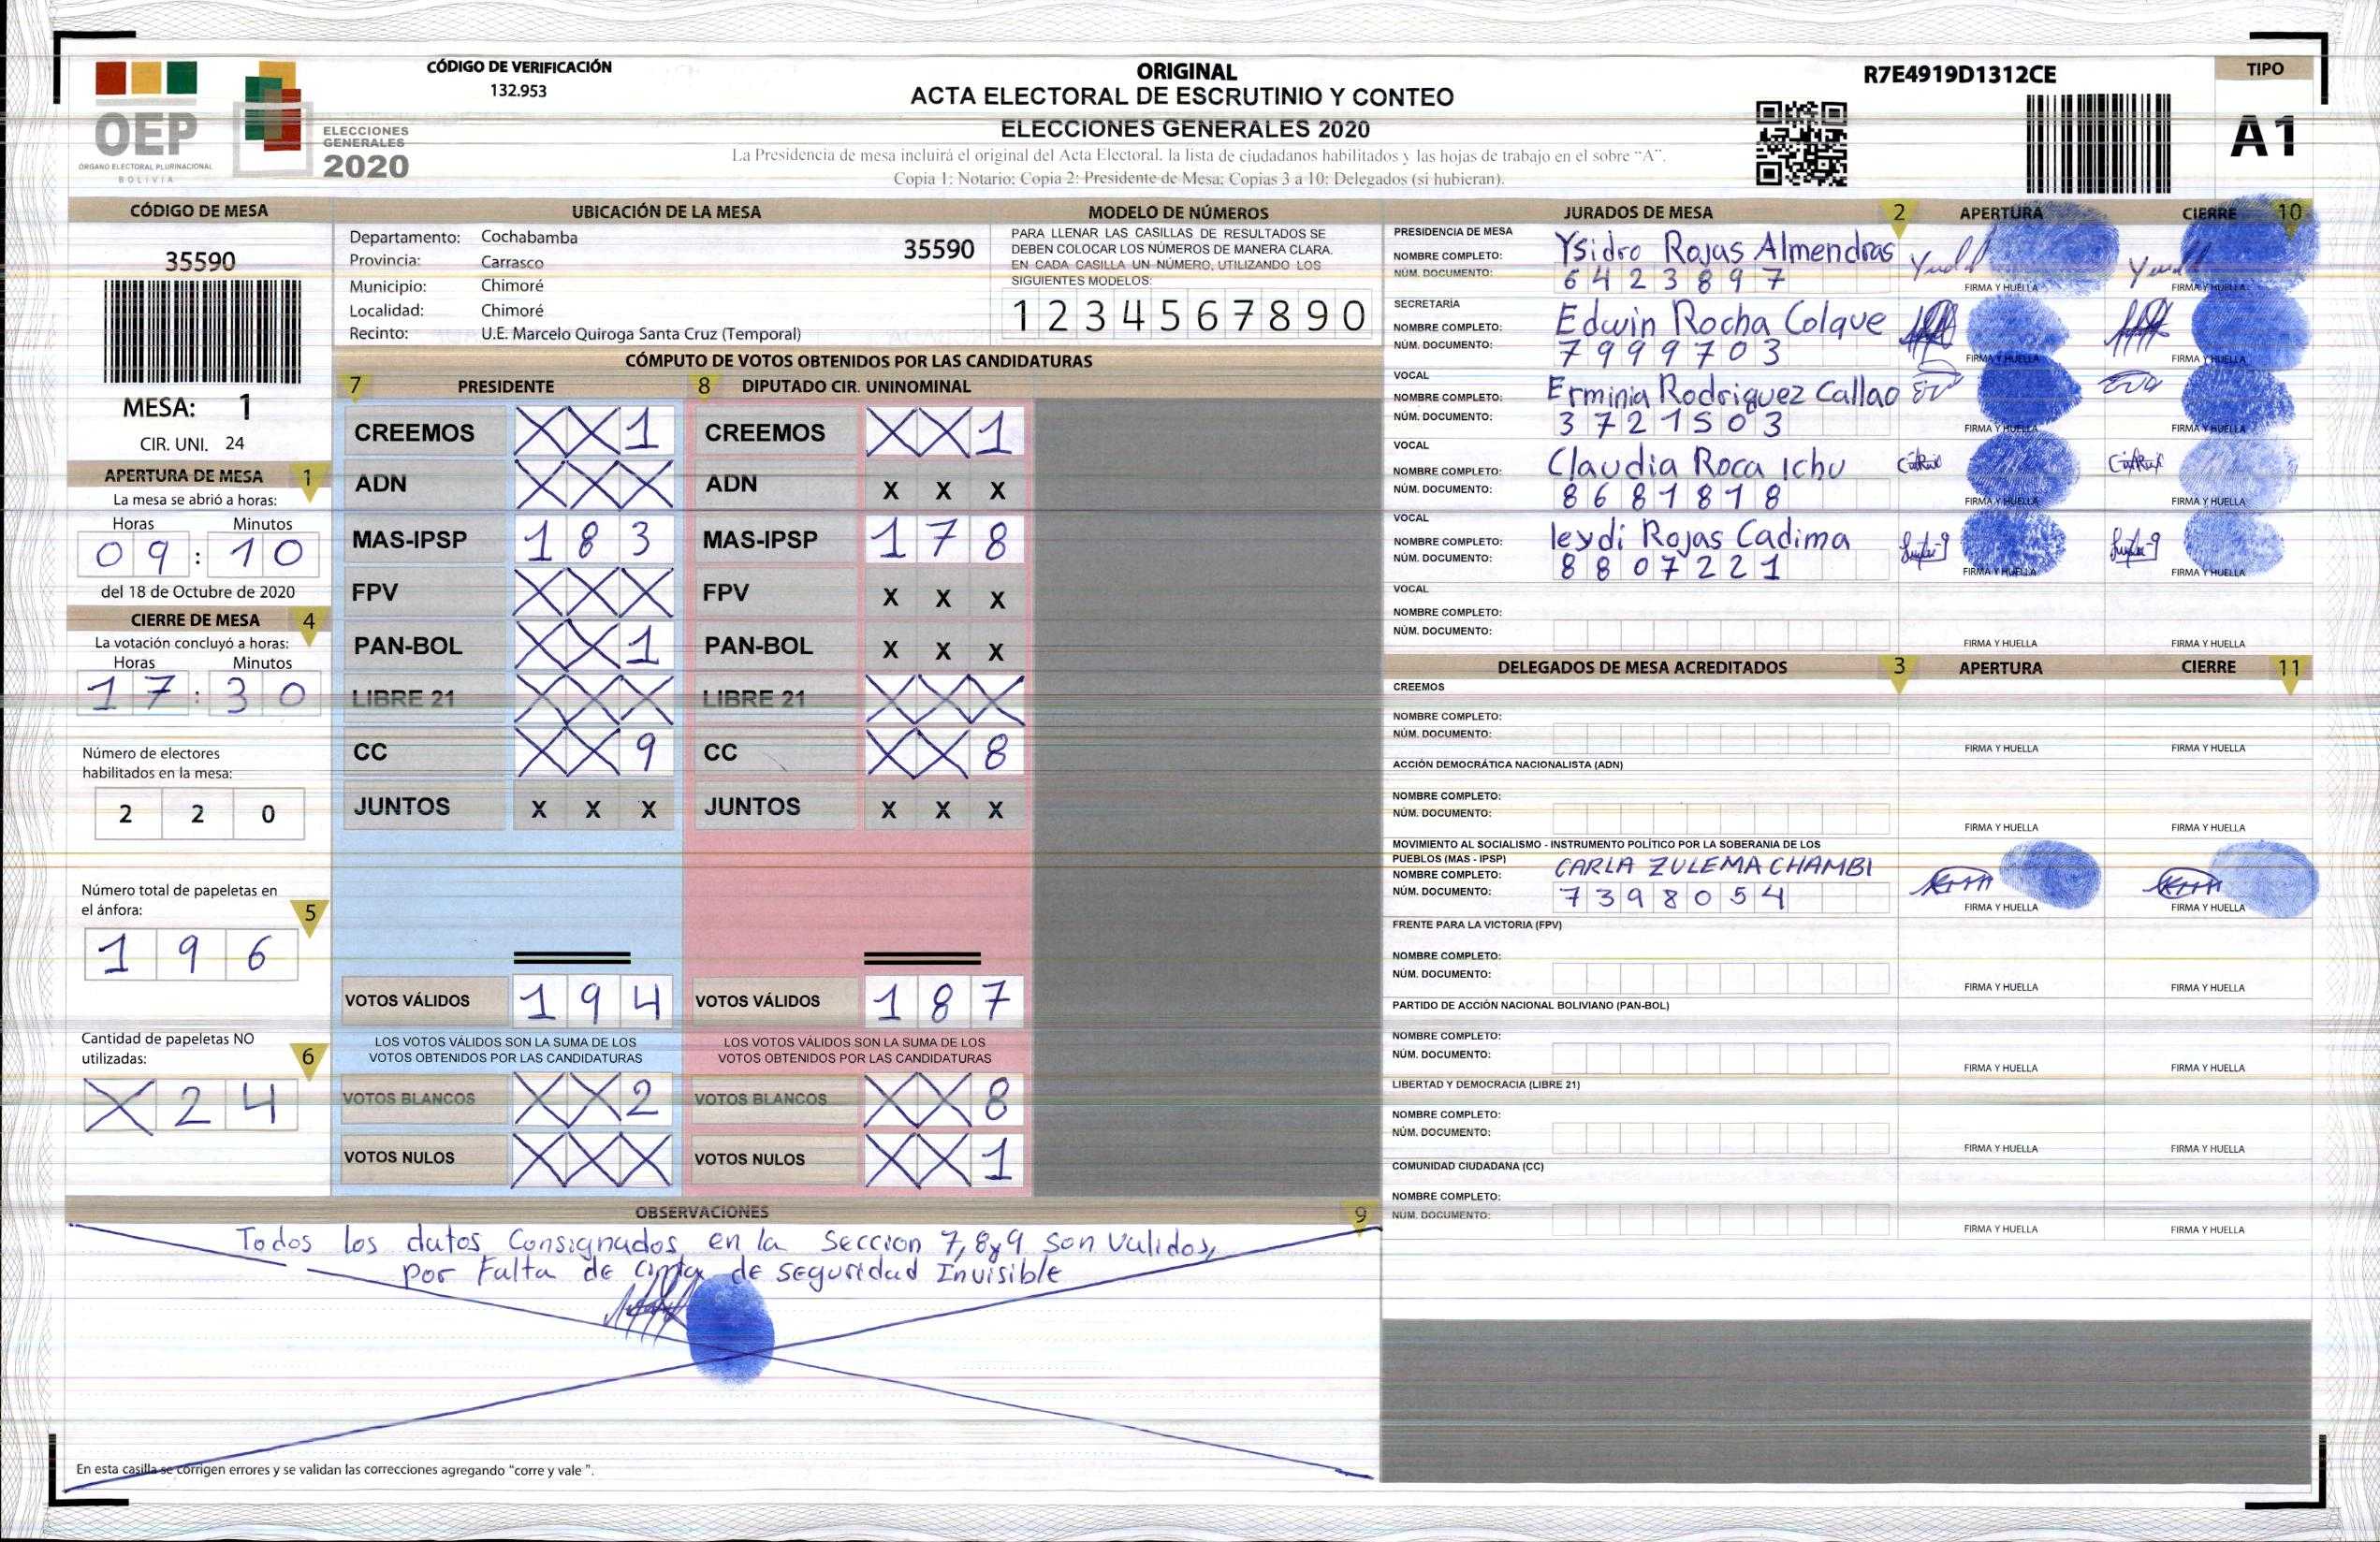 CÓDIGO DE VERIFICACIÓN
132.953
OEP
ÓRGANO ELECTORAL PLURINACIONAL
BOLIVIA
ELECCIONES
GENERALES
2020
ORIGINAL
ACTA ELECTORAL DE ESCRUTINIO Y CONTEO
ELECCIONES GENERALES 2020
La Presidencia de mesa incluirá el original del Acta Electoral, la lista de ciudadanos habilitados y las hojas de trabajo en el sobre "A".
Copia 1: Notario; Copia 2: Presidente de Mesa; Copias 3 a 10: Delegados (si hubieran).
R7E4919D1312CE
TIPO
A1
CÓDIGO DE MESA
35590
MESA: 1
CIR. UNI. 24
APERTURA DE MESA 1
La mesa se abrió a horas:
Horas Minutos
09:10
del 18 de Octubre de 2020
CIERRE DE MESA 4
La votación concluyó a horas:
Horas Minutos
17:30
Número de electores
habilitados en la mesa:
2 2 0
Número total de papeletas en
el ánfora: 5
1 9 6
Cantidad de papeletas NO
utilizadas: 6
X 2 4
UBICACIÓN DE LA MESA
Departamento: Cochabamba
35590
Provincia: Carrasco
Municipio: Chimoré
Localidad: Chimoré
Recinto: U.E. Marcelo Quiroga Santa Cruz (Temporal)
MODELO DE NÚMEROS
PARA LLENAR LAS CASILLAS DE RESULTADOS SE
DEBEN COLOCAR LOS NÚMEROS DE MANERA CLARA.
EN CADA CASILLA UN NÚMERO, UTILIZANDO LOS
SIGUIENTES MODELOS:
1 2 3 4 5 6 7 8 9 0
CÓMPUTO DE VOTOS OBTENIDOS POR LAS CANDIDATURAS
7 PRESIDENTE 8 DIPUTADO CIR. UNINOMINAL
CREEMOS X X 1 CREEMOS X X 1
ADN X X X ADN X X X
MAS-IPSP 1 8 3 MAS-IPSP 1 7 8
FPV X X X FPV X X X
PAN-BOL X X 1 PAN-BOL X X X
LIBRE 21 X X X LIBRE 21 X X X
CC X X 9 CC X X 8
JUNTOS X X X JUNTOS X X X
VOTOS VÁLIDOS 1 9 4 VOTOS VÁLIDOS 1 8 7
LOS VOTOS VÁLIDOS SON LA SUMA DE LOS LOS VOTOS VÁLIDOS SON LA SUMA DE LOS
VOTOS OBTENIDOS POR LAS CANDIDATURAS VOTOS OBTENIDOS POR LAS CANDIDATURAS
VOTOS BLANCOS X X 2 VOTOS BLANCOS X X 8
VOTOS NULOS X X X VOTOS NULOS X X 1
OBSERVACIONES 9
Todos los datos Consignados en la Seccion 7, 8y9 son Validos,
por Falta de de seguridad Invisible
En esta casilla se corrigen errores y se validan las correcciones agregando "corre y vale ".
JURADOS DE MESA 2 APERTURA CIERRE 10
PRESIDENCIA DE MESA
NOMBRE COMPLETO: Ysidro Rojas Almendras
NÚM. DOCUMENTO: 6423897
FIRMA Y HUELLA FIRMA Y HUELLA
SECRETARÍA
NOMBRE COMPLETO: Edwin Rocha Colque
NÚM. DOCUMENTO: 7999703
FIRMA Y HUELLA FIRMA Y HUELLA
VOCAL
NOMBRE COMPLETO: Erminia Rodriguez Callao
NÚM. DOCUMENTO: 3721503
FIRMA Y HUELLA FIRMA Y HUELLA
VOCAL
NOMBRE COMPLETO: Claudia Roca Ichu
NÚM. DOCUMENTO: 8681818
FIRMA Y HUELLA FIRMA Y HUELLA
VOCAL
NOMBRE COMPLETO: leydi Rojas Cadima
NÚM. DOCUMENTO: 8807221
FIRMA Y HUELLA FIRMA Y HUELLA
VOCAL
NOMBRE COMPLETO:
NÚM. DOCUMENTO:
FIRMA Y HUELLA FIRMA Y HUELLA
DELEGADOS DE MESA ACREDITADOS 3 APERTURA CIERRE 11
CREEMOS
NOMBRE COMPLETO:
NÚM. DOCUMENTO:
FIRMA Y HUELLA FIRMA Y HUELLA
ACCIÓN DEMOCRÁTICA NACIONALISTA (ADN)
NOMBRE COMPLETO:
NÚM. DOCUMENTO:
FIRMA Y HUELLA FIRMA Y HUELLA
MOVIMIENTO AL SOCIALISMO - INSTRUMENTO POLÍTICO POR LA SOBERANIA DE LOS
PUEBLOS (MAS - IPSP)
NOMBRE COMPLETO: CARLA ZULEMA CHAMBI
NÚM. DOCUMENTO: 7398054
FIRMA Y HUELLA FIRMA Y HUELLA
FRENTE PARA LA VICTORIA (FPV)
NOMBRE COMPLETO:
NÚM. DOCUMENTO:
FIRMA Y HUELLA FIRMA Y HUELLA
PARTIDO DE ACCIÓN NACIONAL BOLIVIANO (PAN-BOL)
NOMBRE COMPLETO:
NÚM. DOCUMENTO:
FIRMA Y HUELLA FIRMA Y HUELLA
LIBERTAD Y DEMOCRACIA (LIBRE 21)
NOMBRE COMPLETO:
NÚM. DOCUMENTO:
FIRMA Y HUELLA FIRMA Y HUELLA
COMUNIDAD CIUDADANA (CC)
NOMBRE COMPLETO:
NÚM. DOCUMENTO:
FIRMA Y HUELLA FIRMA Y HUELLA